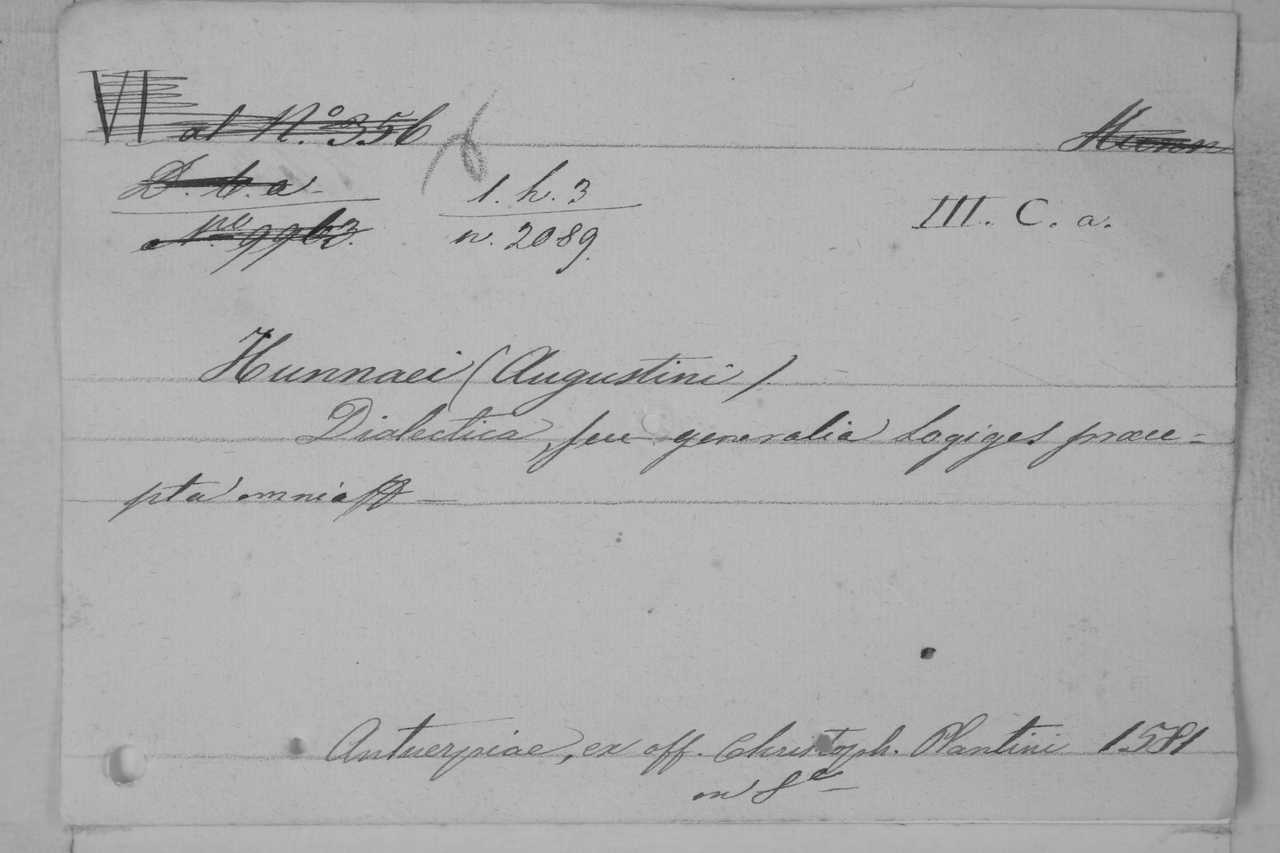 VI al N.º 356
D. b. a 1. h. 3 III. C. a.
Nro 9963. n. 2089.
Hunnaei (Augustini)
Dialectica, seu generalia Logiges praece-
pta omnia
Antuerpiae, ex off. Christoph. Plantini 1581
in 8º